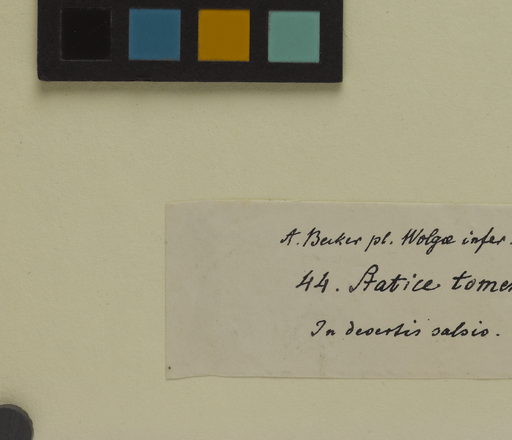 A. Becker pl. Wolgæ infer.
44. Statice tomen
In desertis salsis.